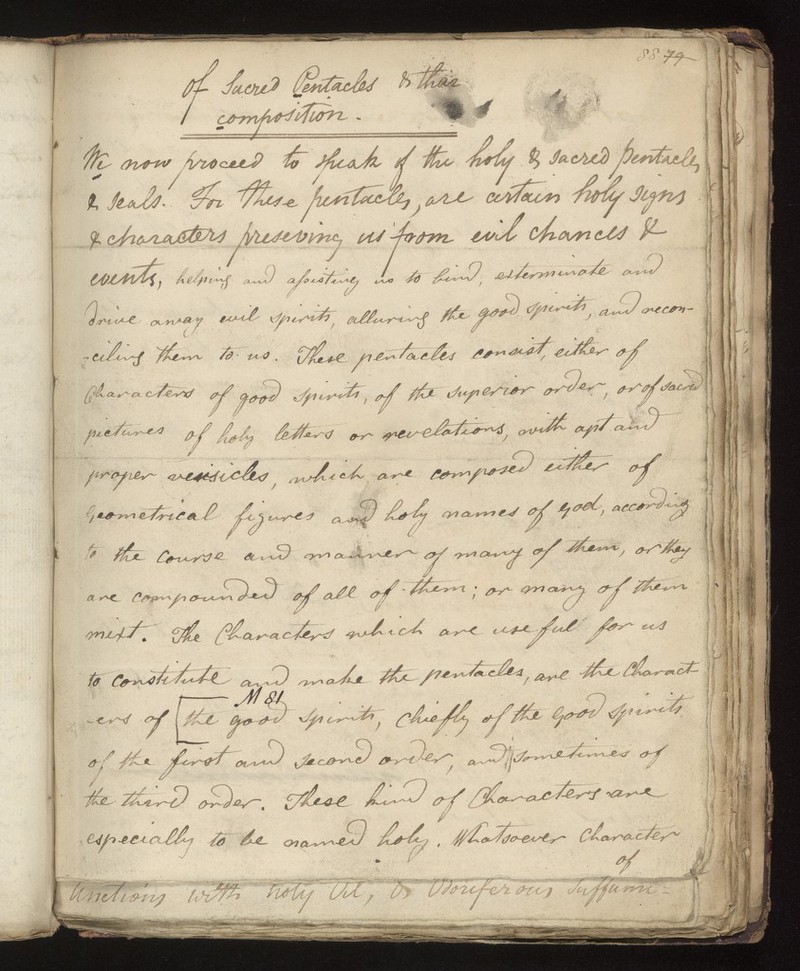 88 79
Of Sacred Pentacles & thair
composition.
We now proceed to speak of the holy & sacred pentacles
& seals. For these pentacles, are certain holy signs
& characters preserving us from evil chances &
events, helping and assisting us to bind, exterminate and
drive away evil spirits, alluring the good spirits, and recon-
-ciling them to us. These pentacles consist, either of
Characters of good spirits, of the superior order, or of sacred
pictures of holy letters or revelations, with apt and
proper versicles, which are composed either of
Geometrical figures and holy names of god, according
to the course and manner of many of them, or they
are compounded of all of them; or many of them
mixt. The Characters which are useful for us
to constitute and make the pentacles, are the Charact-
M 81
-ers of [the good spirits, chiefly of the good spirits
of the first and second order, and sometimes of
the third order. These kind of Characters are
especially to be named holy. Whatsoever Character
of
Unctions with holy Oil, & Odoriferous Suffumi-